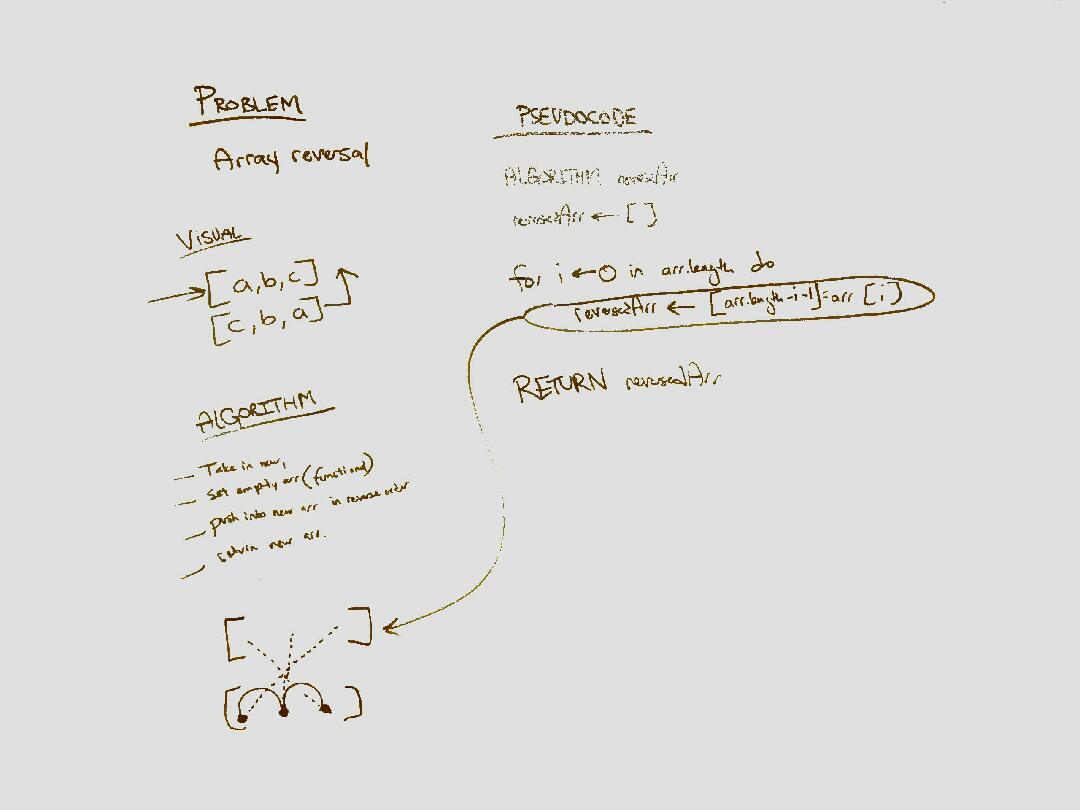 PROBLEM
Array reversal
VISUAL
[a,b,c]
[c,b,a]
ALGORITHM
— Take in new,
— Set empty arr (functional)
— push into new arr in reverse order
— return new arr.
PSEUDOCODE
ALGORITHM reverseArr
reversedArr ← [ ]
for i ← 0 in arr.length do
reversedArr ← [arr.length-i-1]=arr [i]
RETURN reversedArr